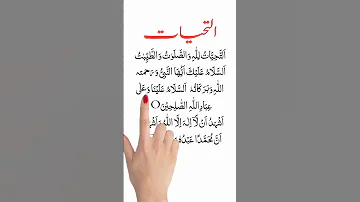 التحیات
اَلتَّحِيَّاتُ لِلّٰهِ وَالصَّلَوٰتُ وَالطَّيِّبٰتُ
اَلسَّلَامُ عَلَيْكَ اَيُّهَا النَّبِيُّ وَرَحْمَتُه
اللّٰهِ وَبَرَكَاتُهٗ اَلسَّلَامُ عَلَيْنَا وَعَلٰى
عِبَادِ اللّٰهِ الصّٰلِحِيْنَ
اَشْهَدُ اَنْ لَّآ اِلٰهَ اِلَّا اللّٰهُ وَاَشْهَدُ
اَنَّ مُحَمَّدًا عَبْدُهٗ